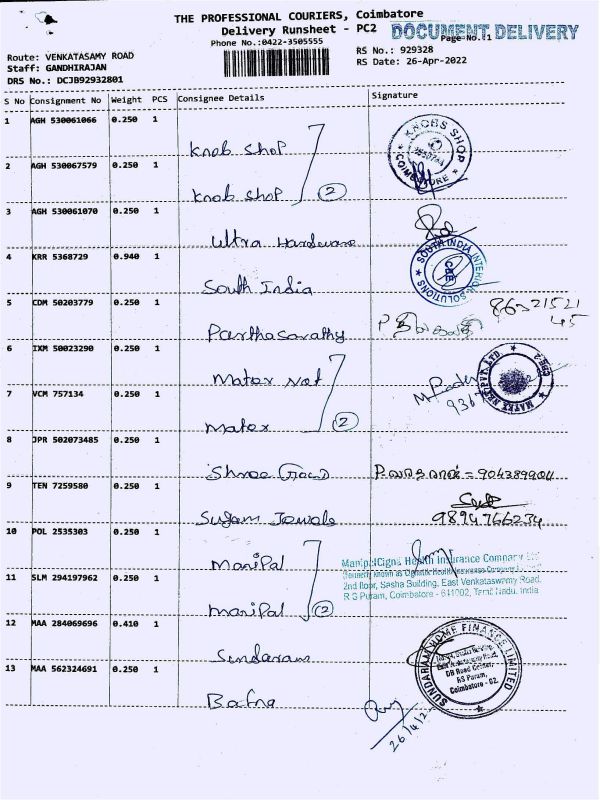 THE PROFESSIONAL COURIERS, Coimbatore
Delivery Runsheet - PC2
DOCUMENT DELIVERY
Phone No.:0422-3505555
Page No.:1
Route: VENKATASAMY ROAD
RS No.: 929328
Staff: GANDHIRAJAN
RS Date: 26-Apr-2022
DRS No.: DCJB92932801
S No Consignment No Weight PCS Consignee Details Signature
1 AGH 530061066 0.250 1
Knob Shop
KNOBS SHOP
COIMBATORE
2 AGH 530067579 0.250 1
Knob Shop 2
3 AGH 530061070 0.250 1
Ultra Hardware
4 KRR 5368729 0.940 1
South India
SOUTH INDIA INTERIOR SOLUTIONS
CBE
5 CDM 50203779 0.250 1
Parthasarathy
6 IXM 50023290 0.250 1
Matex Net
7 VCM 757134 0.250 1
Matex 2
MATEX NET PVT. LTD
CBE-2
8 JPR 502073485 0.250 1
Shree
9 TEN 7259580 0.250 1
9894766234
10 POL 2535303 0.250 1
Manipal
ManipalCigna Health Insurance Company
2nd floor, Sasha Building, East Venkataswamy Road,
R S Puram, Coimbatore - 641002, Tamil Nadu, India
11 SLM 294197962 0.250 1
Manipal 2
12 MAA 284069696 0.410 1
Sundaram
SUNDARAM HOME FINANCE LIMITED
DB Road Corner,
RS Puram,
Coimbatore - 02.
13 MAA 562324691 0.250 1
Bafna
26/4/2